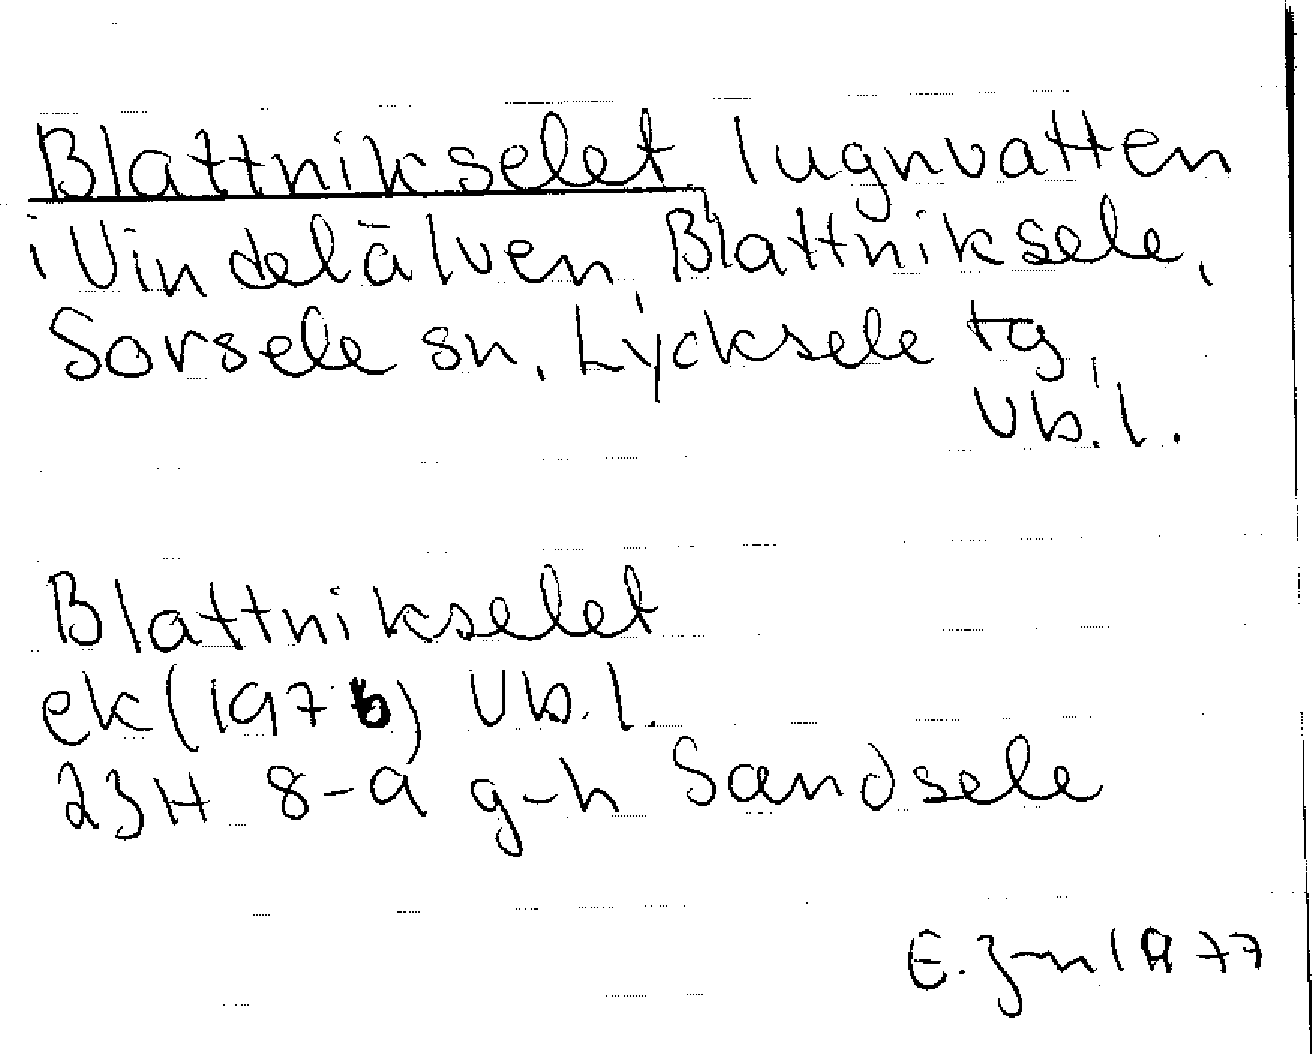 Blattnikselet lugnvatten
i Vindelälven, Blattniksele,
Sorsele sn, Lycksele tg,
Vb. l.
Blattnikselet
ek (1976) Vb. l.
23H 8-9 g-h Sandsele
E. J-n 1977